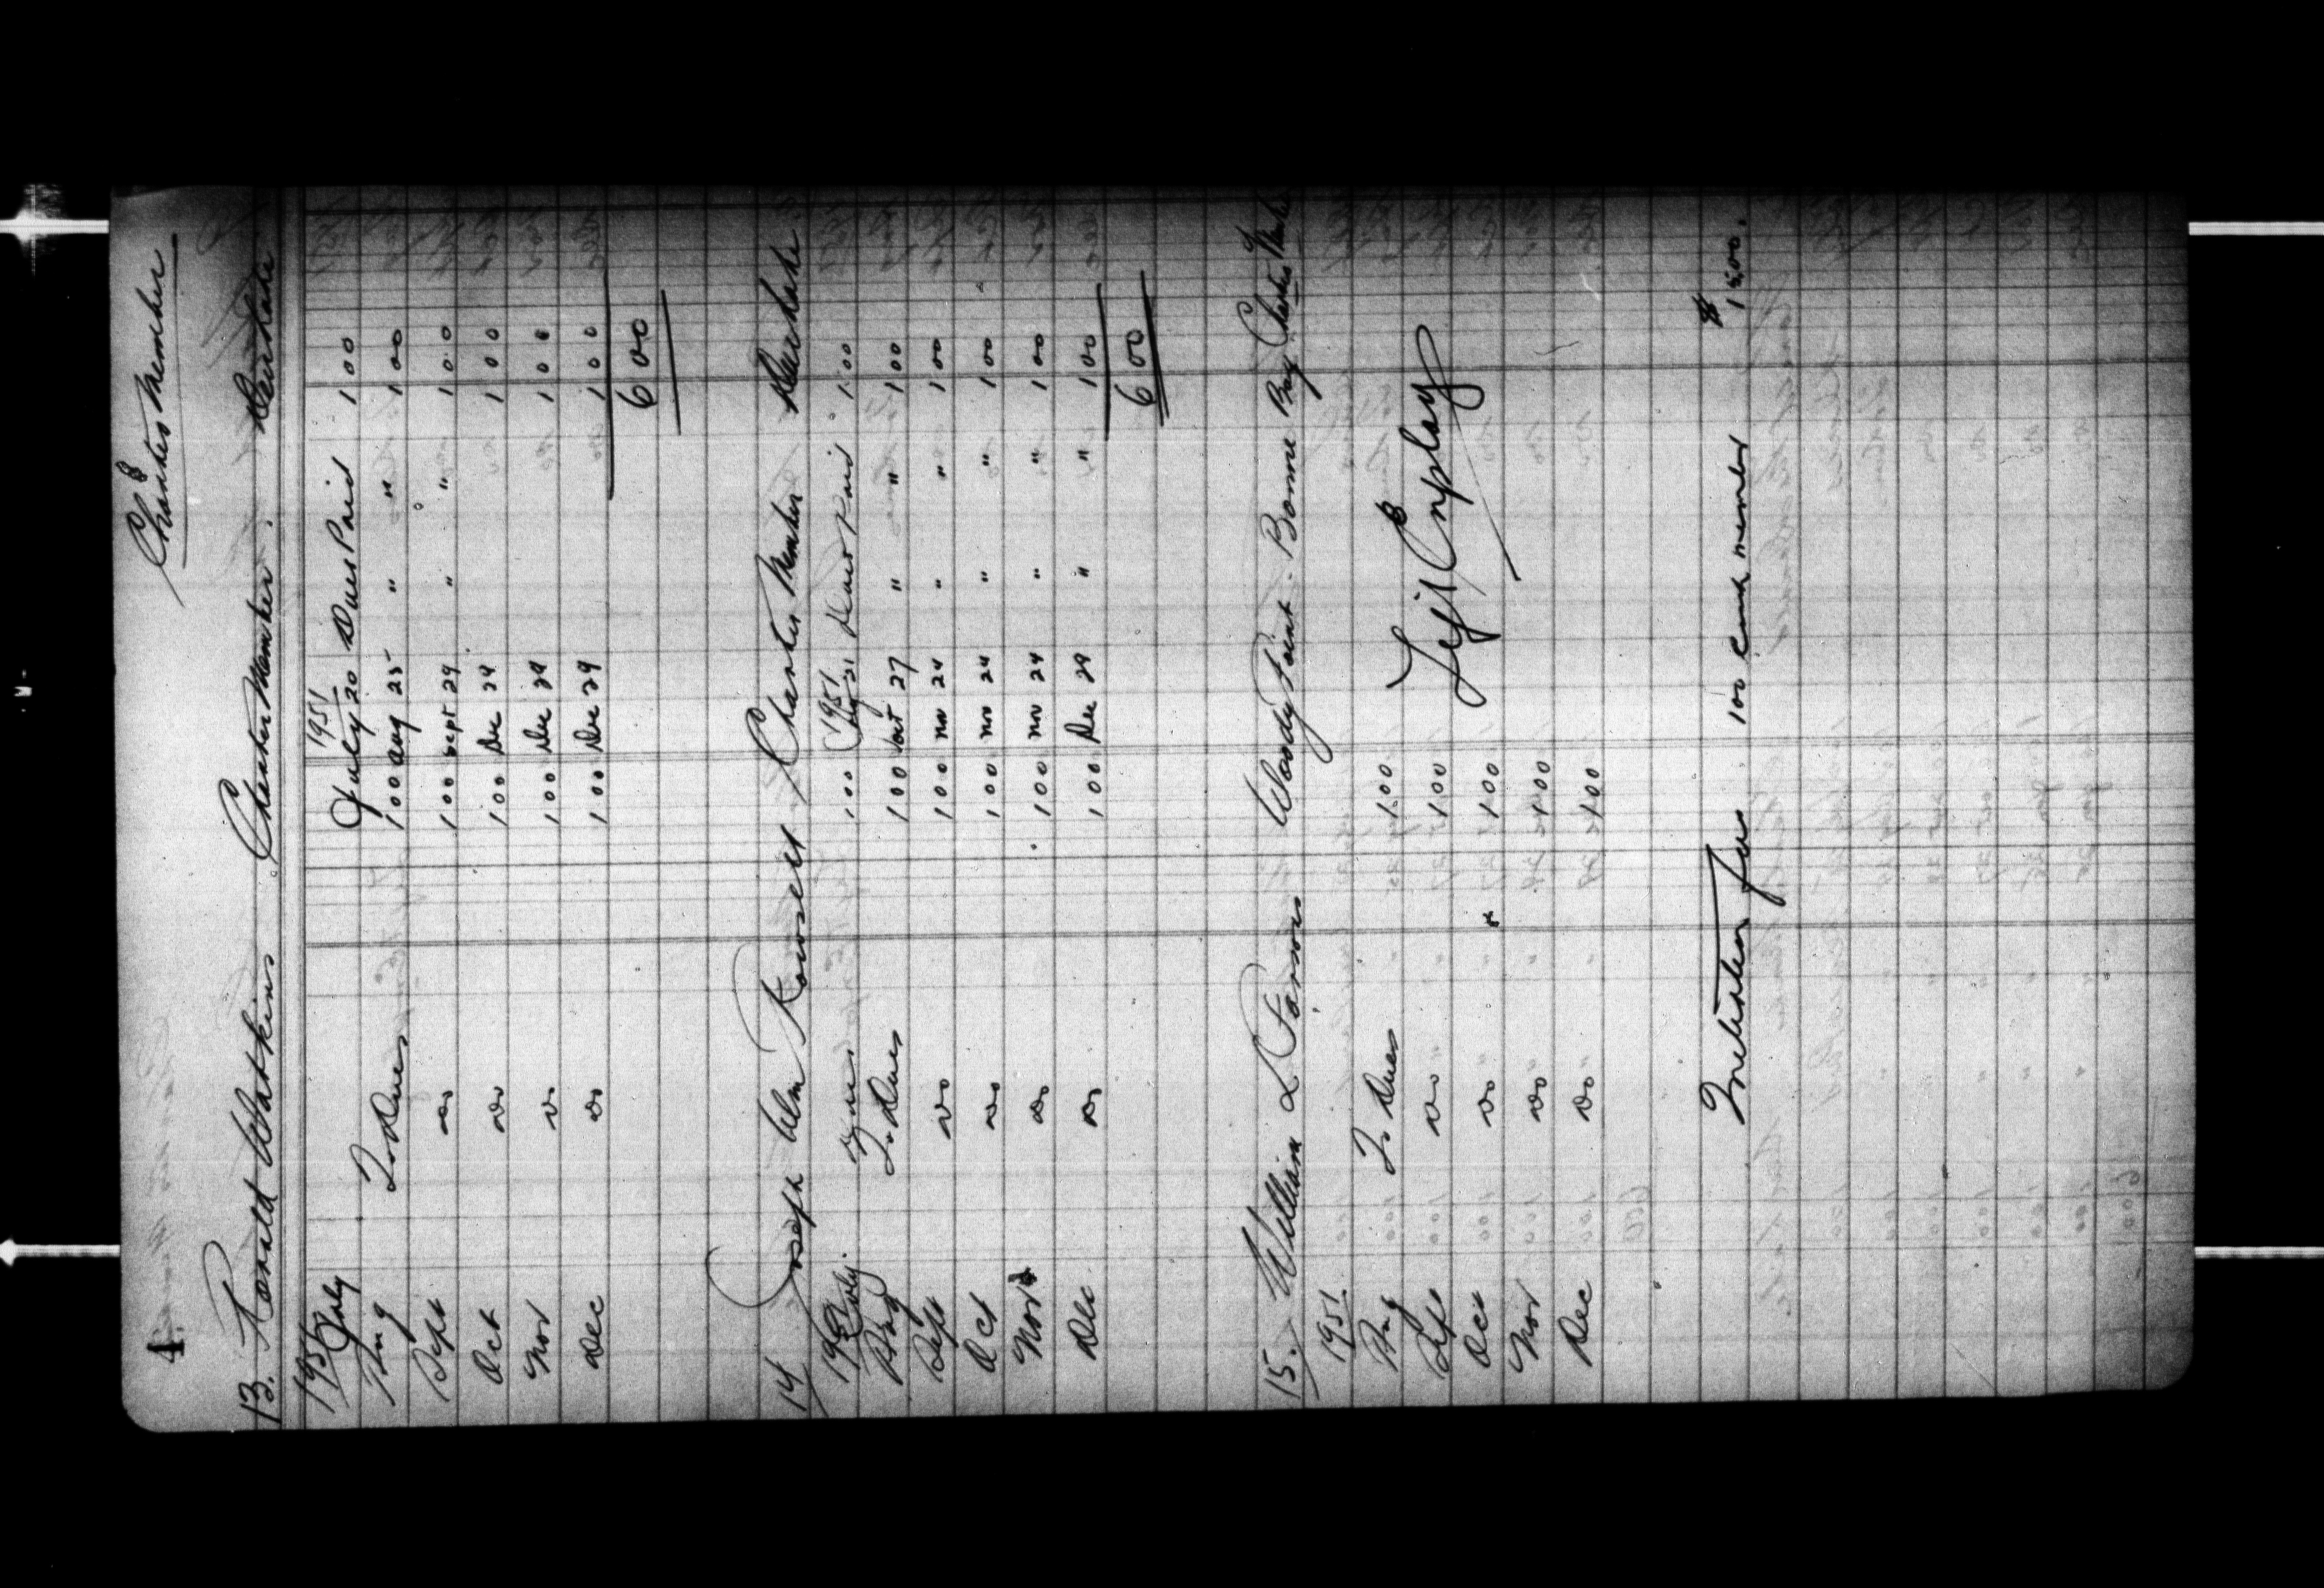 4. Charter Member
13. Ronald Watkins Charter Member. Deer Lake
1951 1951
July July 20 Dues Paid 1 00
Aug To Dues 1 00 Aug 25 " " 1 00
Sept do 1 00 Sept 29 " " 1 00
Oct do 1 00 Dec 29 1 00
Nov do 1 00 Dec 29 1 00
Dec do 1 00 Dec 29 1 00
6 00
14 Joseph Wm Rowsell Charter Member Deer Lake
1951 1951
July 1 00 21 Dues Paid 1 00
Aug To Dues 1 00 Oct 27 " " 1 00
Sept do 1 00 Nov 24 " " 1 00
Oct do 1 00 Nov 24 " " 1 00
Nov do 1 00 Nov 24 " " 1 00
Dec do 1 00 Dec 29 " " 1 00
6 00
15. William L Parsons Woody Point. Bonne Bay Charter
1951.
Aug To Dues 1.00
Sept do 1.00 Left Employ
Oct do 1.00
Nov do 1.00
Dec do 1.00
Initiation Fees 1 00 each member $ 15.00.